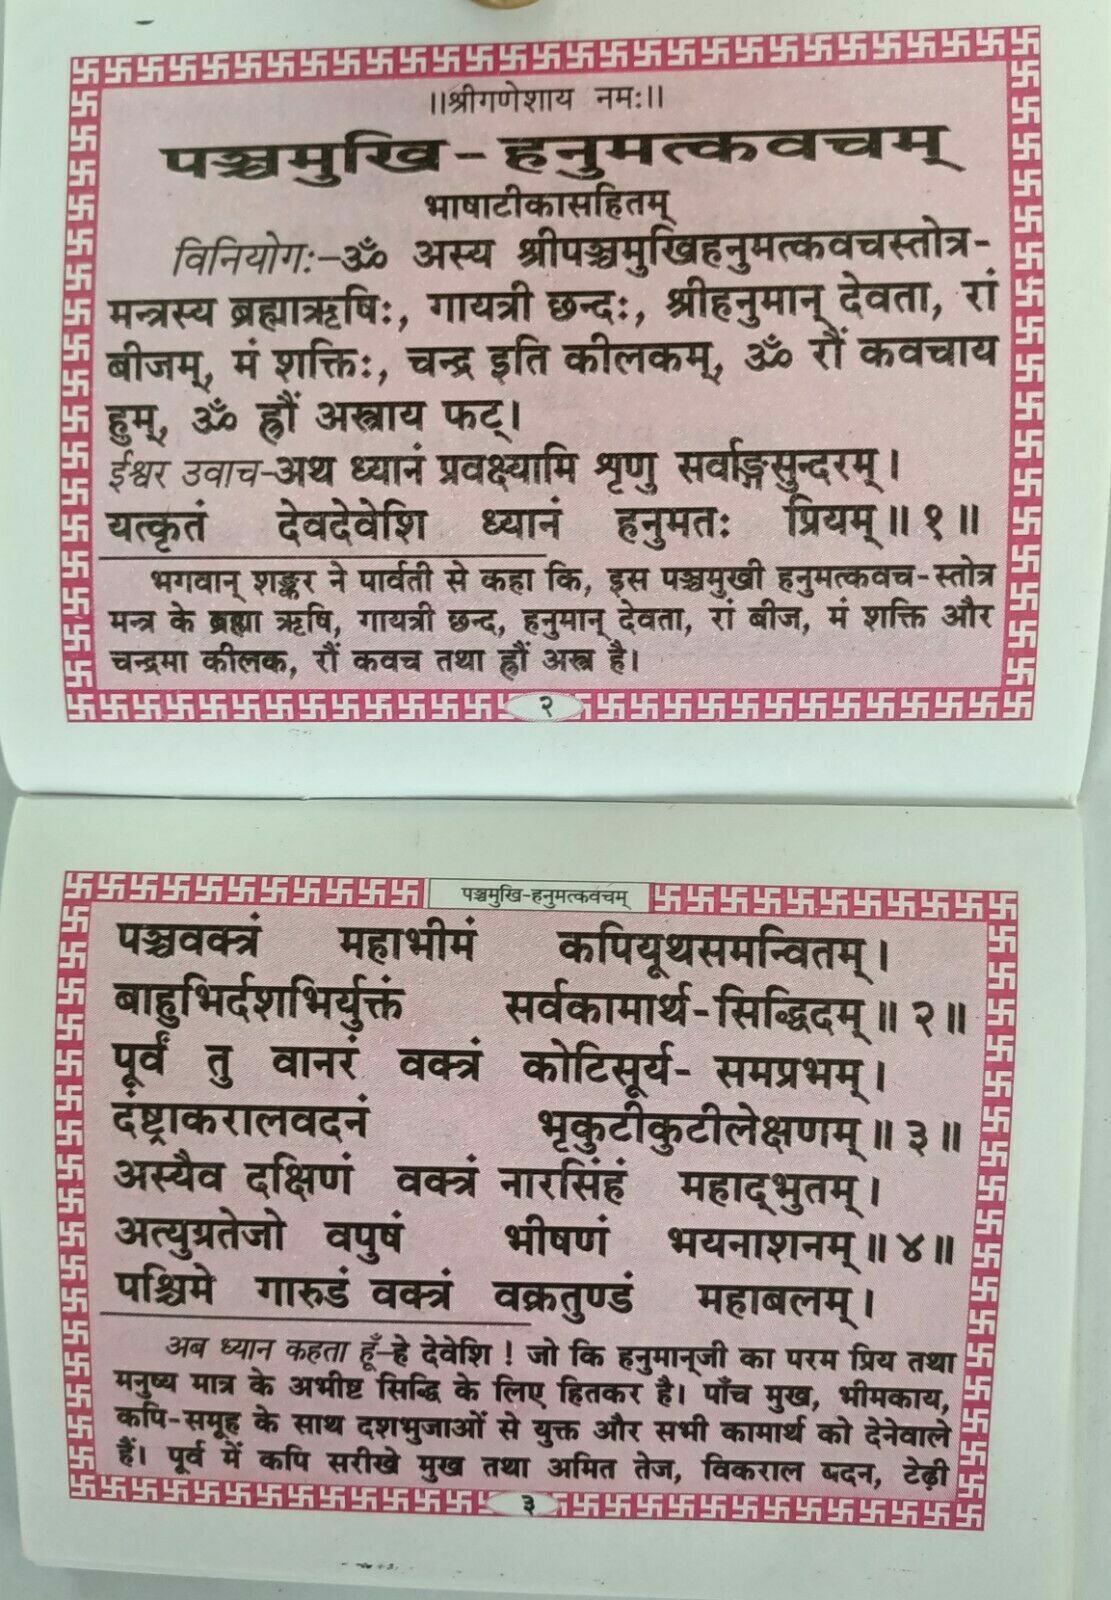 ।।श्रीगणेशाय नमः।।
पञ्चमुखि-हनुमत्कवचम्
भाषाटीकासहितम्
विनियोगः-ॐ अस्य श्रीपञ्चमुखिहनुमत्कवचस्तोत्र-
मन्त्रस्य ब्रह्माऋषिः, गायत्री छन्दः, श्रीहनुमान् देवता, रां
बीजम्, मं शक्तिः, चन्द्र इति कीलकम्, ॐ रौं कवचाय
हुम्, ॐ ह्रौं अस्त्राय फट्।
ईश्वर उवाच-अथ ध्यानं प्रवक्ष्यामि श्रृणु सर्वाङ्गसुन्दरम्।
यत्कृतं देवदेवेशि ध्यानं हनुमतः प्रियम्॥१॥
भगवान् शङ्कर ने पार्वती से कहा कि, इस पञ्चमुखी हनुमत्कवच-स्तोत्र
मन्त्र के ब्रह्मा ऋषि, गायत्री छन्द, हनुमान् देवता, रां बीज, मं शक्ति और
चन्द्रमा कीलक, रौं कवच तथा ह्रौं अस्त्र है।
२
पञ्चमुखि-हनुमत्कवचम्
पञ्चवक्त्रं महाभीमं कपियूथसमन्वितम्।
बाहुभिर्दशभिर्युक्तं सर्वकामार्थ-सिद्धिदम्॥२॥
पूर्वं तु वानरं वक्त्रं कोटिसूर्य- समप्रभम्।
दंष्ट्राकरालवदनं भृकुटीकुटीलेक्षणम्॥३॥
अस्यैव दक्षिणं वक्त्रं नारसिंहं महाद्भुतम्।
अत्युग्रतेजो वपुषं भीषणं भयनाशनम्॥४॥
पश्चिमे गारुडं वक्त्रं वक्रतुण्डं महाबलम्।
अब ध्यान कहता हूँ-हे देवेशि ! जो कि हनुमान्‌जी का परम प्रिय तथा
मनुष्य मात्र के अभीष्ट सिद्धि के लिए हितकर है। पाँच मुख, भीमकाय,
कपि-समूह के साथ दशभुजाओं से युक्त और सभी कामार्थ को देनेवाले
हैं। पूर्व में कपि सरीखे मुख तथा अमित तेज, विकराल वदन, टेढ़ी
३